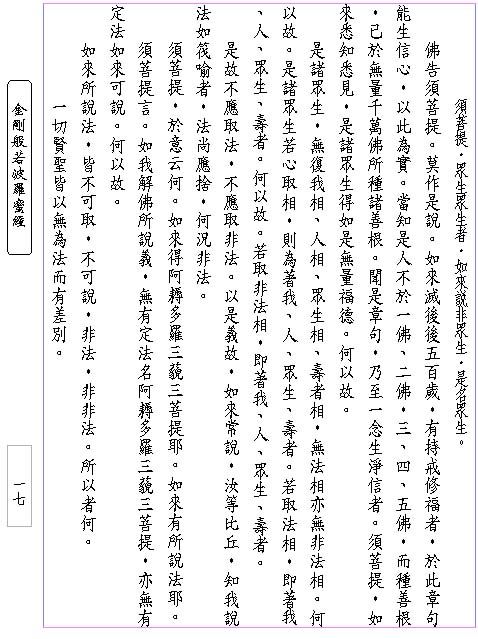 須菩提．眾生眾生者．如來說非眾生．是名眾生。
佛告須菩提。莫作是說。如來滅後後五百歲．有持戒修福者．於此章句
能生信心．以此為實。當知是人不於一佛、二佛．三、四、五佛．而種善根
．已於無量千萬佛所種諸善根。聞是章句．乃至一念生淨信者。須菩提．如
來悉知悉見．是諸眾生得如是無量福德。何以故。
是諸眾生．無復我相、人相、眾生相、壽者相．無法相亦無非法相。何
以故。是諸眾生若心取相．則為著我、人、眾生、壽者。若取法相．即著我
、人、眾生、壽者。何以故。若取非法相．即著我、人、眾生、壽者。
是故不應取法．不應取非法。以是義故．如來常說．汝等比丘．知我說
法如筏喻者．法尚應捨．何況非法。
須菩提．於意云何。如來得阿耨多羅三藐三菩提耶。如來有所說法耶。
須菩提言。如我解佛所說義．無有定法名阿耨多羅三藐三菩提．亦無有
定法如來可說。何以故。
如來所說法．皆不可取．不可說．非法．非非法。所以者何。
一切賢聖皆以無為法而有差別。
金剛般若波羅蜜經
一七